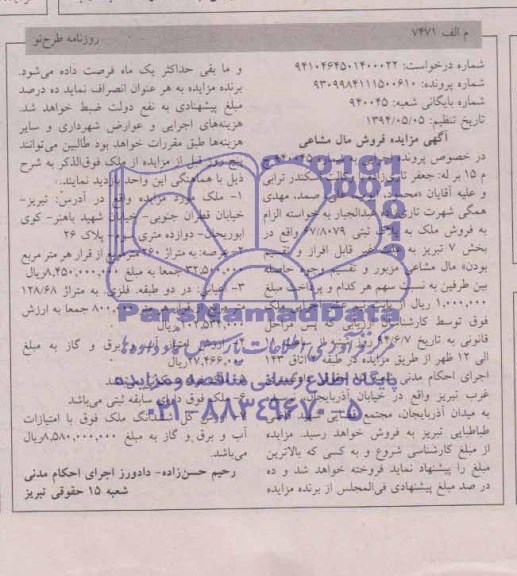 م الف ۷۴۷۱
روزنامه طرح‌نو
شماره درخواست: ۹۴۱۰۴۶۴۵۰۱۴۰۰۰۲۲
شماره پرونده: ۹۳۰۹۹۸۴۱۱۱۵۰۰۶۱۰
شماره بایگانی شعبه: ۹۴۰۰۴۵
تاریخ تنظیم: ۱۳۹۴/۰۵/۰۵
آگهی مزایده فروش مال مشاعی
در خصوص پرونده
م ۱۵ بر له: جعفر اسکندر ترابی
و علیه آقایان «محمد، صمد، مهدی
همگی شهرت تاری عبدالجبار به خواسته الزام
به فروش ملک به پلاک ثبتی ۶۷/۸۰۷۹ واقع در
بخش ۷ تبریز به قابل افراز و تقسیم
بودن» مال مشاعی مزبور و تقسیم وجوه حاصله
بین طرفین به نسبت سهم هر کدام و پرداخت مبلغ
۱,۰۰۰,۰۰۰ ریال ملک
فوق توسط کارشناسان ارزیابی که پس مراحل
قانونی به تاریخ ۹۴/۶/۷
الی ۱۲ ظهر از طریق مزایده در طبقه اتاق ۱۴۳
اجرای احکام مدنی
غرب تبریز واقع در خیابان آذربایجان، نرسیده
به میدان آذربایجان، مجتمع قضایی شهید
طباطبایی تبریز به فروش خواهد رسید. مزایده
از مبلغ کارشناسی شروع و به کسی که بالاترین
مبلغ را پیشنهاد نماید فروخته خواهد شد و ده
در صد مبلغ پیشنهادی فی‌المجلس از برنده مزایده
و ما بقی حداکثر یک ماه فرصت داده می‌شود.
برنده مزایده به هر عنوان انصراف نماید ده درصد
مبلغ پیشنهادی به نفع دولت ضبط خواهد شد.
هزینه‌های اجرایی و عوارض شهرداری و سایر
هزینه‌ها طبق مقررات خواهد بود طالبین می‌توانند
پنج روز قبل از مزایده از ملک فوق‌الذکر به شرح
ذیل با هماهنگی این واحد بازدید نمایند.
۱- ملک مورد مزایده واقع در آدرس: تبریز-
خیابان قطران جنوبی- خیابان شهید باهنر- کوی
ابوریحان- دوازده متری پلاک ۲۶
۲- عرصه: به متراژ ۲۶۰ متر مربع از قرار هر متر مربع
۳۲,۵۰۰,۰۰۰ جمعا به مبلغ ۸,۴۵۰,۰۰۰,۰۰۰ریال
۳- اعیانی: در دو طبقه، فلزی، به متراژ ۱۲۸/۶۸
جمعا به ارزش
۱۰۲,۵۳۴,۰۰۰ریال
برق و گاز به مبلغ
۲۷,۴۶۶,۰۰۰ریال
ملک فوق دارای سابقه ثبتی می‌باشد
کل ششدانگ ملک فوق با امتیازات
آب و برق و گاز به مبلغ ۸,۵۸۰,۰۰۰,۰۰۰ریال
می‌باشد.
رحیم حسن‌زاده- دادورز اجرای احکام مدنی
شعبه ۱۵ حقوقی تبریز
ParsNamadData
پایگاه اطلاع رسانی مناقصه و مزایده
۰۲۱-۸۸۳۴۹۶۷۰-۵